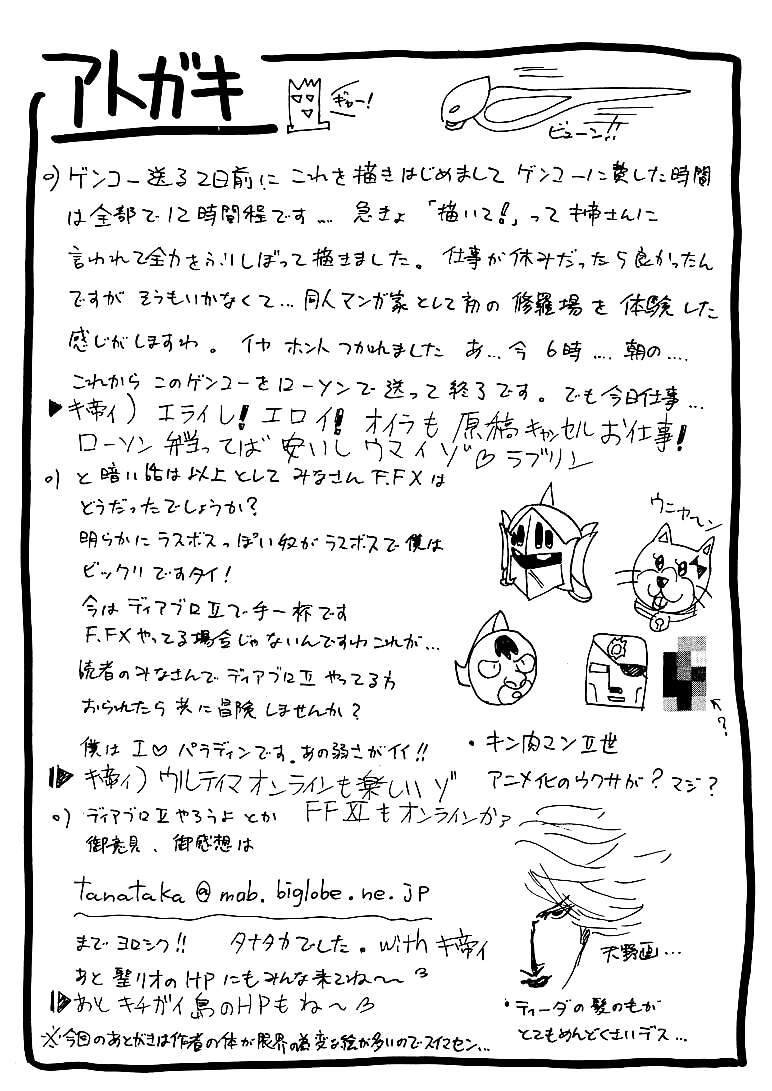 アトガキ
ギャー!
ビューン!!
○) ゲンコー送る2日前に これを描きはじめまして ゲンコーに費した時間
は全部で12時間程です… 急きょ 「描いて!」って キ帝さんに
言われて全力をふりしぼって描きました。 仕事が休みだったら良かったん
ですが そうもいかなくて… 同人マンガ家として初の 修羅場を 体験した
感じがしますわ。 イヤ ホント つかれました あ… 今 6時…. 朝の….
これから このゲンコーをローソンで 送って終了です。でも今日仕事…
▶キ帝ィ) エライし! エロイ! オイラも 原稿キャンセル お仕事!
ローソン 弁当ってば 安いし ウマイゾ♡ ラブリン
○) と 暗い話は以上として みなさん F.F.Xは
どうだったでしょうか?
明らかに ラスボスっぽい奴が ラスボスで 僕は
ビックリですタイ!
今は ディアブロⅡで手一杯です
F.F.Xやってる場合じゃないんですわ これが…
読者のみなさんで ディアブロⅡ やってる方
おられたら 共に冒険しませんか?
僕は I♡ パラディンです。あの弱さがイイ!!
ウニャ〜ン
?
・キン肉マンⅡ世
アニメ化のウワサが? マジ?
▶キ帝ィ) ウルティマオンラインも楽しいゾ
○) ディアブロⅡやろうよ とか FFⅪもオンラインか?
御意見、御感想は
tanataka@mob.biglobe.ne.jp
まで ヨロシク!! タナタカでした。with キ帝ィ
あと 聖リオのHPにもみんな来てね〜
▶あと キチガイ島のHPもね〜
天野画…
・ティーダの髪のもが
とてもめんどくさいデス…
※今回のあとがきは作者の体が限界の為変な絵が多いのでスイマセン…